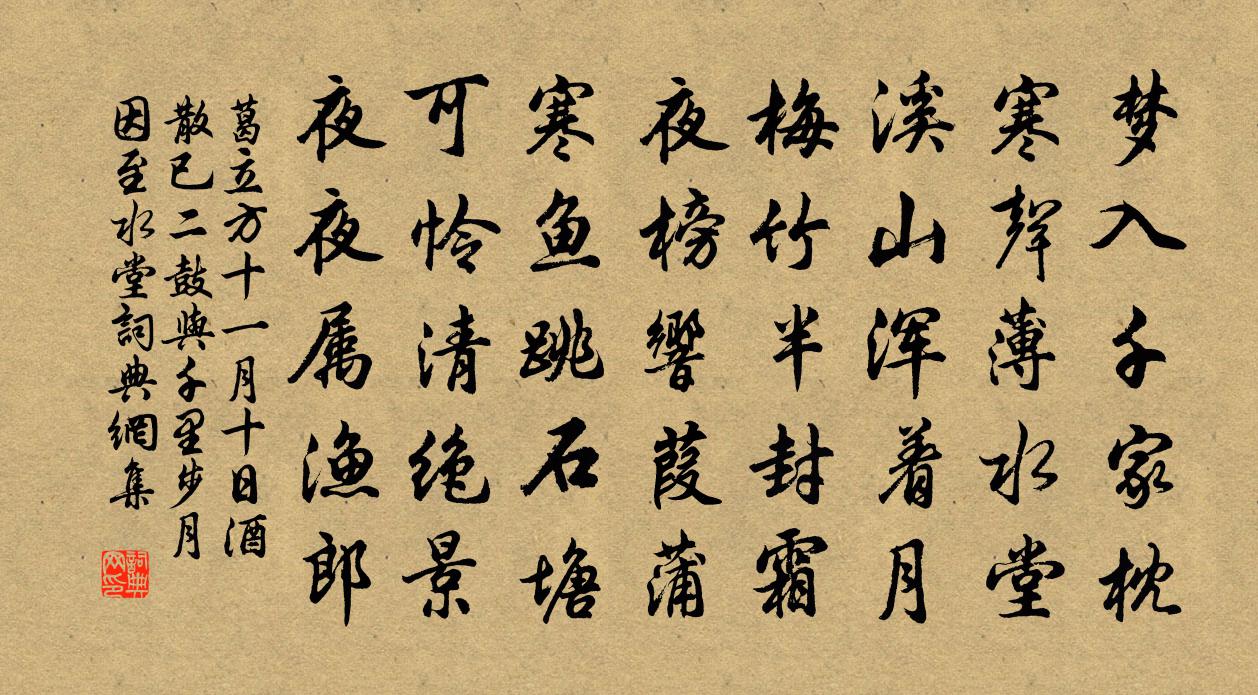 梦入千家枕
寒声薄水堂
溪山浑着月
梅竹半封霜
夜榜响葭蒲
寒鱼跳石塘
可怜清绝景
夜夜属渔郎
葛立方十一月十日酒
散已二鼓與千里步月
因至水堂詞典網集
詞典
网印